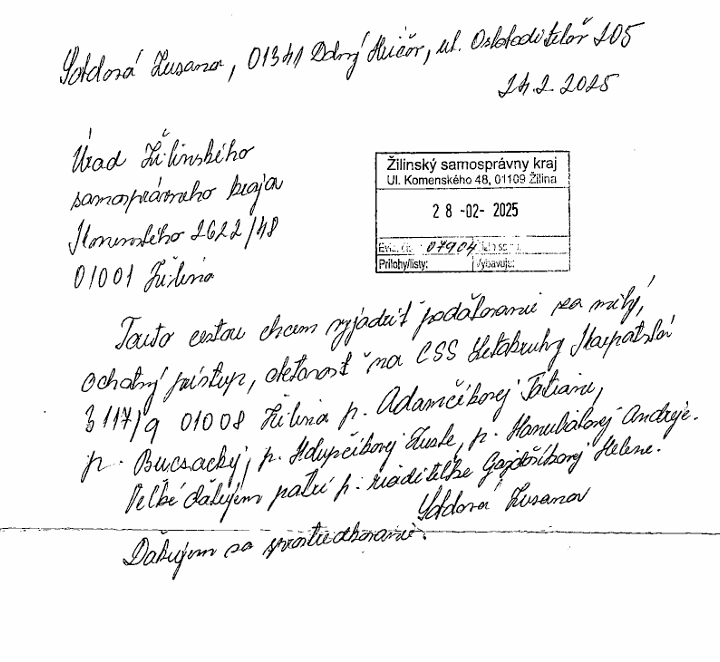 Žuzana, 01341 Dolný Hričov, ul. Osloboditeľov 105
24.2.2025
Úrad Žilinského
samosprávneho kraja
Komenského 2622/48
01001 Žilina
Žilinský samosprávny kraj
Ul. Komenského 48, 01109 Žilina
28 -02- 2025
Evid. č.: 07904
Prílohy/listy: Vybavuje:
Touto cestou chcem vyjadriť poďakovanie za milý,
ochotný prístup, na CSS Karpatská
3117/9 01008 Žilina p. Adamčíkovej Tatiane,
p. Bucsacky, p. Hlupčíkovej Zuzke, p. Hanuliakovej Andreje.
Veľké ďakujem patrí p. riaditeľke Gajdošíkovej Helene.
Zuzana
Ďakujem za sprostredkovanie.